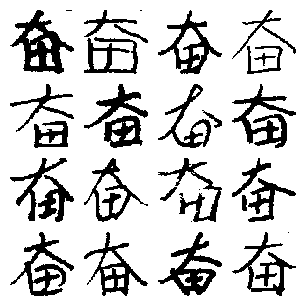 奋奋奋奋
奋奋奋奋
奋奋奋奋
奋奋奋奋